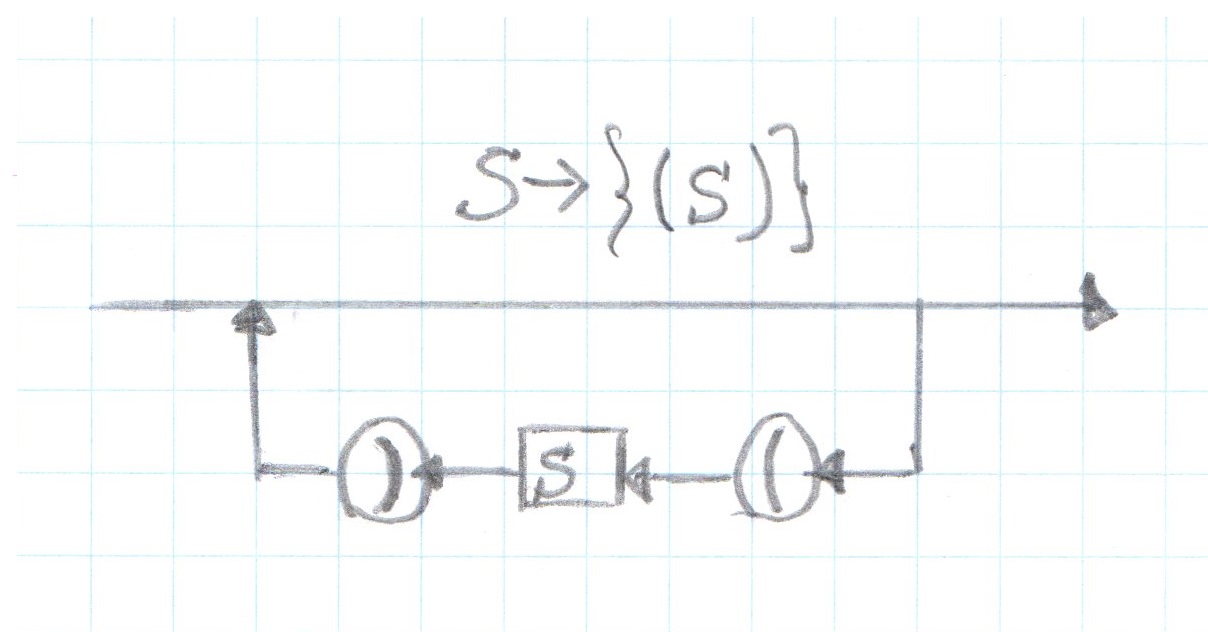 S→{(S)}
) S (